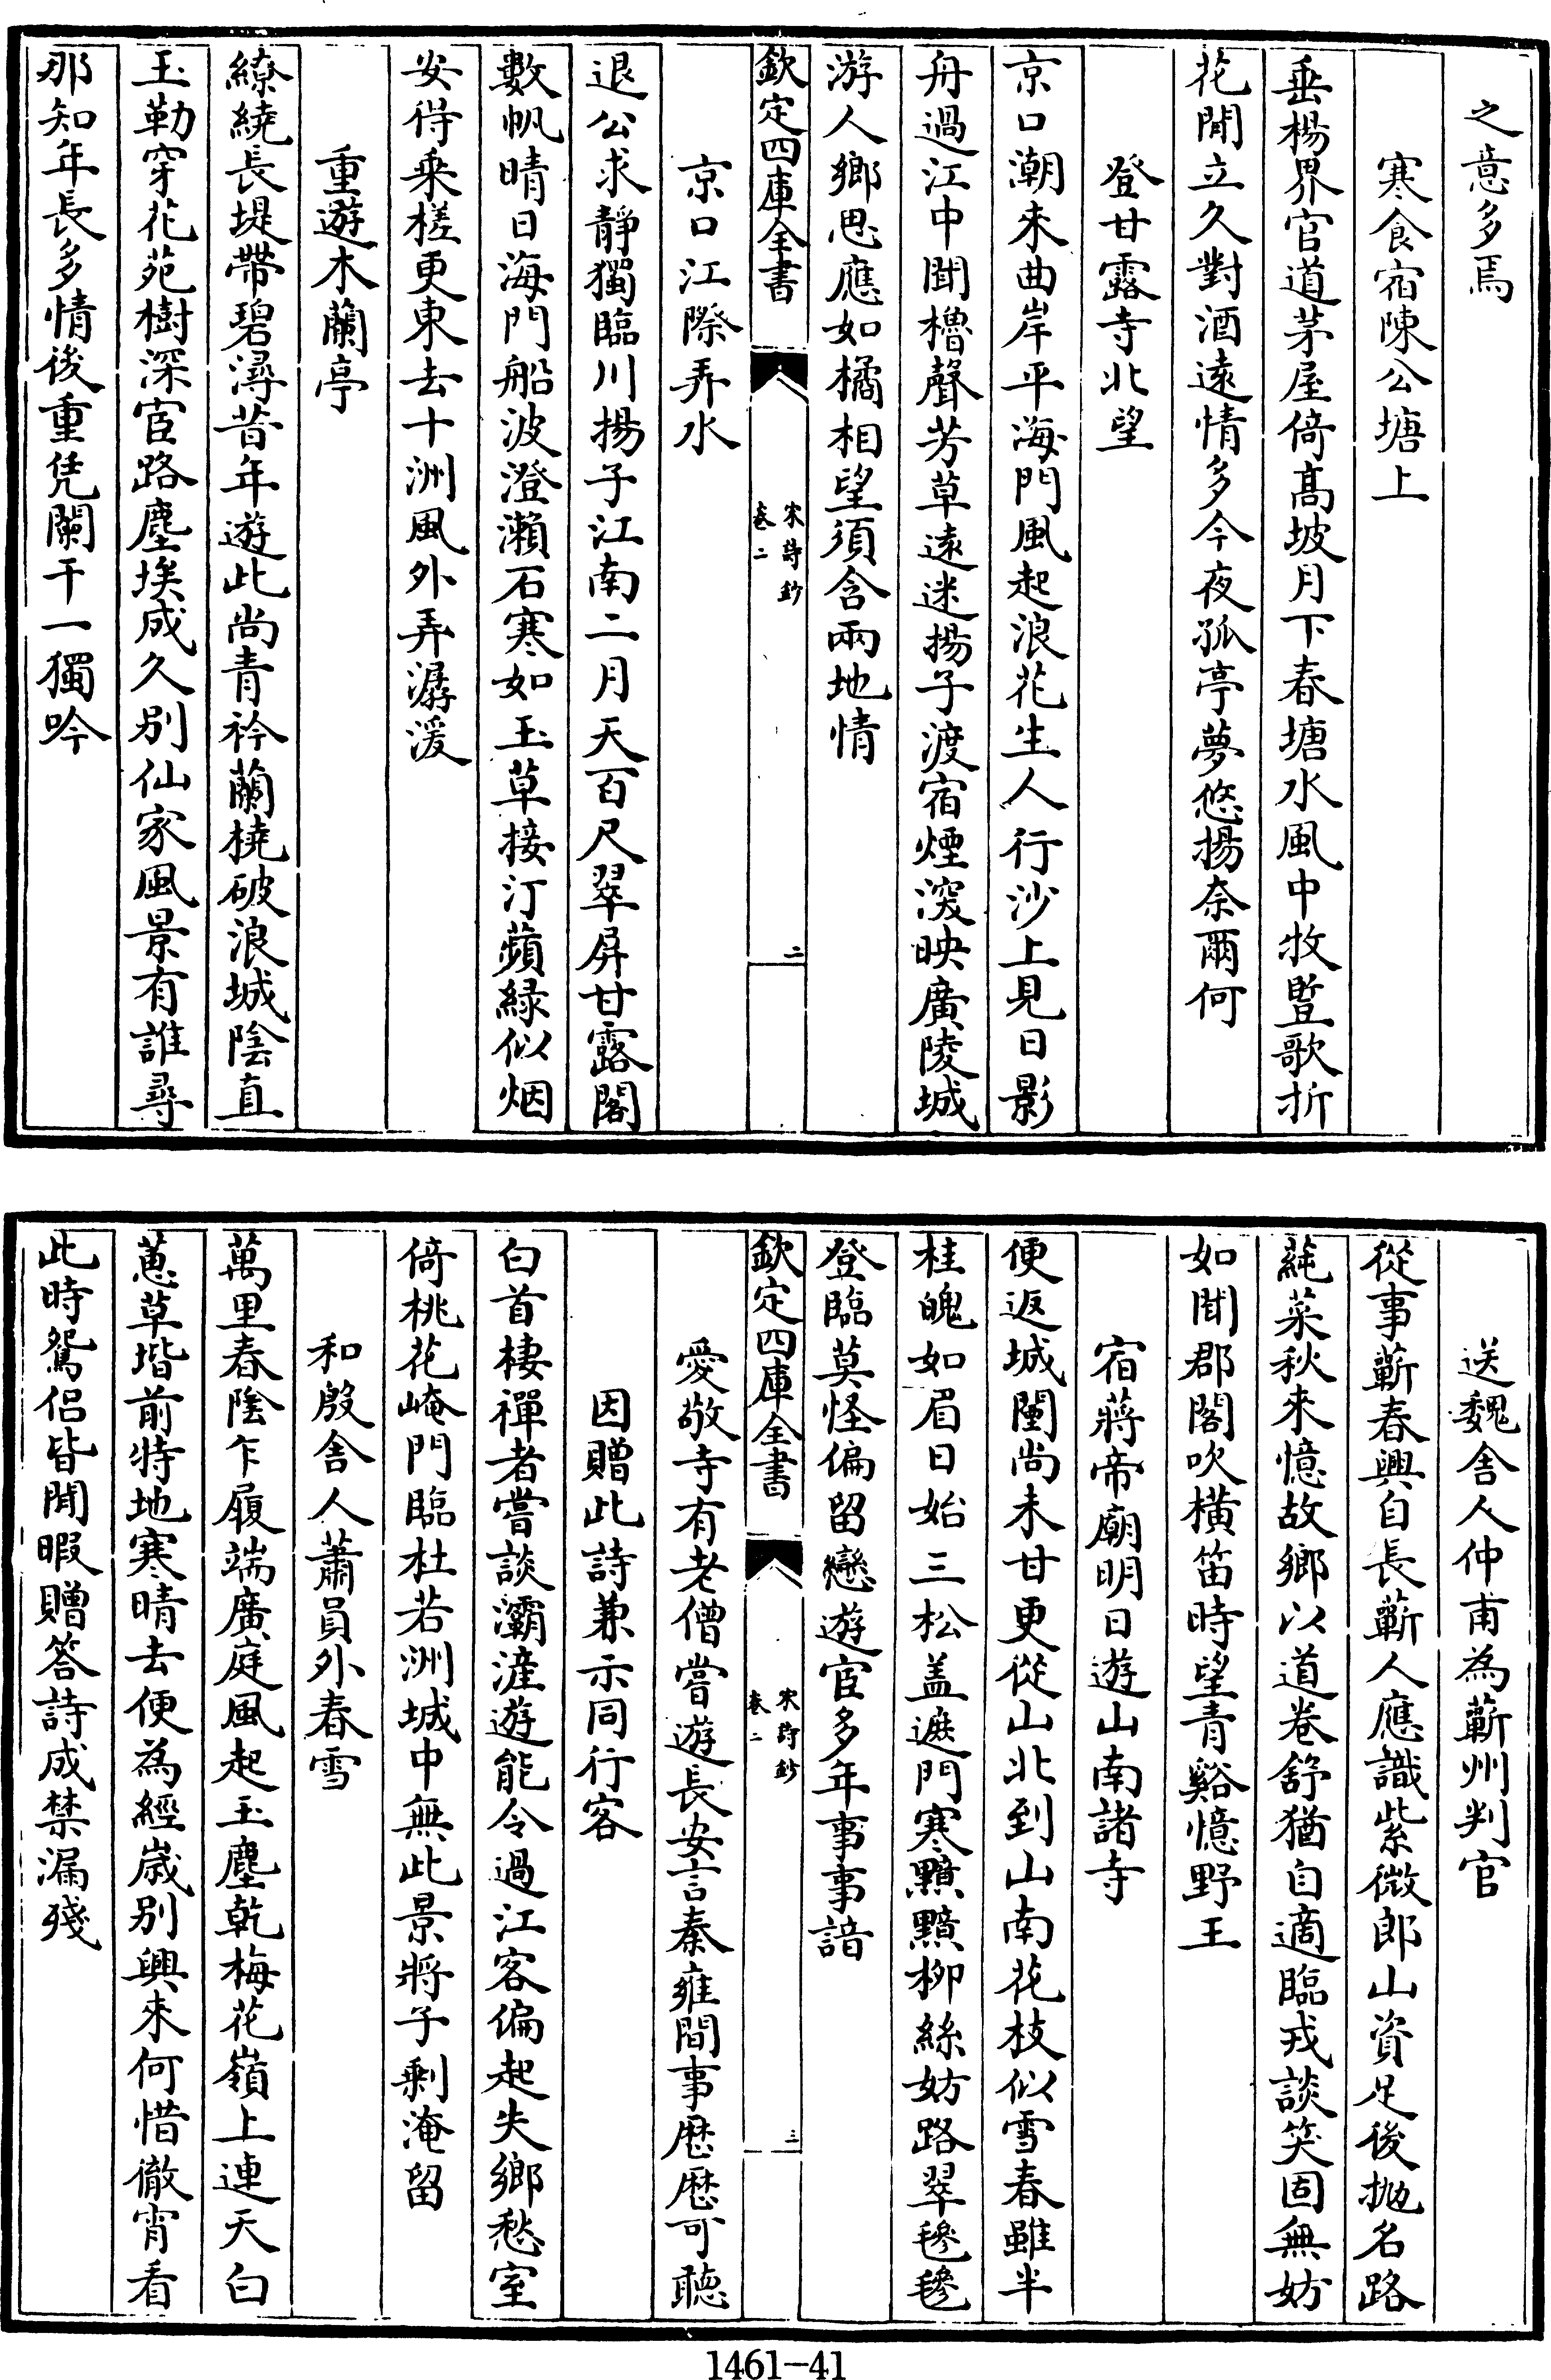 之意多焉
寒食宿陳公塘上
垂楊界官道茅屋倚髙坡月下春塘水風中牧豎歌折
花閒立久對酒逺情多今夜孤亭夢悠揚奈爾何
登甘露寺北望
京口潮来曲岸平海門風起浪花生人行沙上見日影
舟過江中聞櫓聲芳草逺迷揚子渡宿煙深映廣陵城
游人鄉思應如橘相望須含兩地情
欽定四庫全書
宋詩鈔
卷二
二
京口江際弄水
退公求靜獨臨川揚子江南二月天百尺翠屏甘露閣
數帆晴日海門船波澄瀨石寒如玉草接汀蘋緑似烟
安得乗槎更東去十洲風外弄潺湲
重遊木蘭亭
繚繞長堤帶碧潯昔年遊此尚青衿蘭橈破浪城陰直
玉勒穿花苑樹深宦路塵埃成久别仙家風景有誰尋
那知年長多情後重凭闌干一獨吟
送魏舍人仲甫為蘄州判官
從事蘄春興自長蘄人應識紫微郎山資足後抛名路
蒓菜秋來憶故鄉以道卷舒猶自適臨戎談笑固無妨
如聞郡閣吹橫笛時望青谿憶野王
宿蔣帝廟明日遊山南諸寺
便返城闉尚未甘更從山北到山南花枝似雪春雖半
桂魄如眉日始三松盖遮門寒黯黯柳絲妨路翠毿毿
登臨莫怪偏留戀遊宦多年事事諳
欽定四庫全書
宋詩鈔
卷二
三
愛敬寺有老僧嘗遊長安言秦雍間事歴歴可聽
因贈此詩兼示同行客
白首棲禪者嘗談灞滻遊能令過江客偏起失鄉愁室
倚桃花崦門臨杜若洲城中無此景將子剩淹留
和殷舍人蕭員外春雪
萬里春陰乍履端廣庭風起玉塵乾梅花嶺上連天白
蕙草堦前特地寒晴去便為經嵗别興來何惜徹宵看
此時鴛侣皆閒暇贈答詩成禁漏殘
1461-41